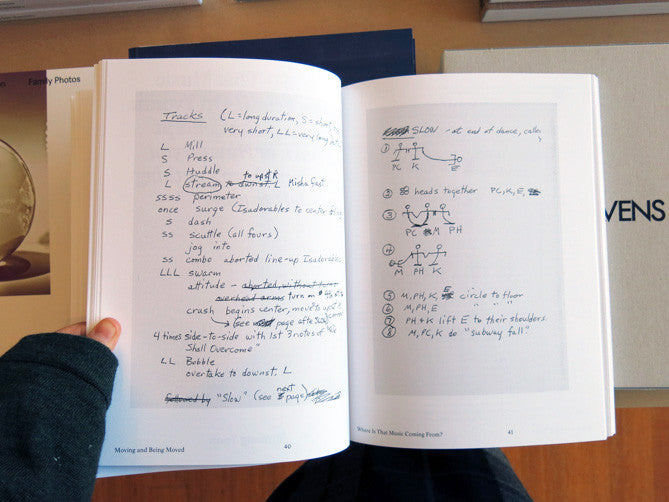 Family Photos
Tracks (L = long duration, S = short,
very short, LL = very long
L Mill
S Press
S Huddle
to upst R
L stream to downst. L Misha fast
ssss perimeter
once surge (Isadorables to center
s dash
ss scuttle (all fours)
jog into
ss combo aborted line-up Isadorables
LLL swarm
attitude - aborted, without turns
overhead arms turn on #4
crash begins center, move to upst
(see page after Slow)
4 times side-to-side with 1st 3 notes of "We
Shall Overcome"
LL Bobble
overtake to downst. L
next
followed by "Slow" (see page)
Moving and Being Moved
40
SLOW - at end of dance, caller
1
PC K E
2 heads together PC, K, E,
3
PC M PH
4
M PH K
E
5 M, PH, K, circle to floor
6 M, PH, E
7 PH + K lift E to their shoulders.
8 M, PC, K to "subway fall"
Where Is That Music Coming From?
41
VENS